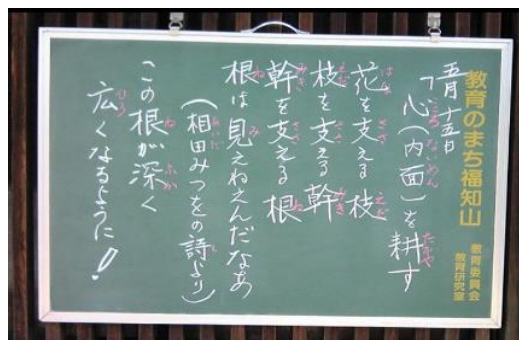 教育のまち福知山
教育委員会
教育研究室
五月十五日
「心(内面)を耕す
花を支える枝
枝を支える幹
幹を支える根
根は見えねえんだなあ
(相田みつをの詩より)
この根が深く
広くなるように!